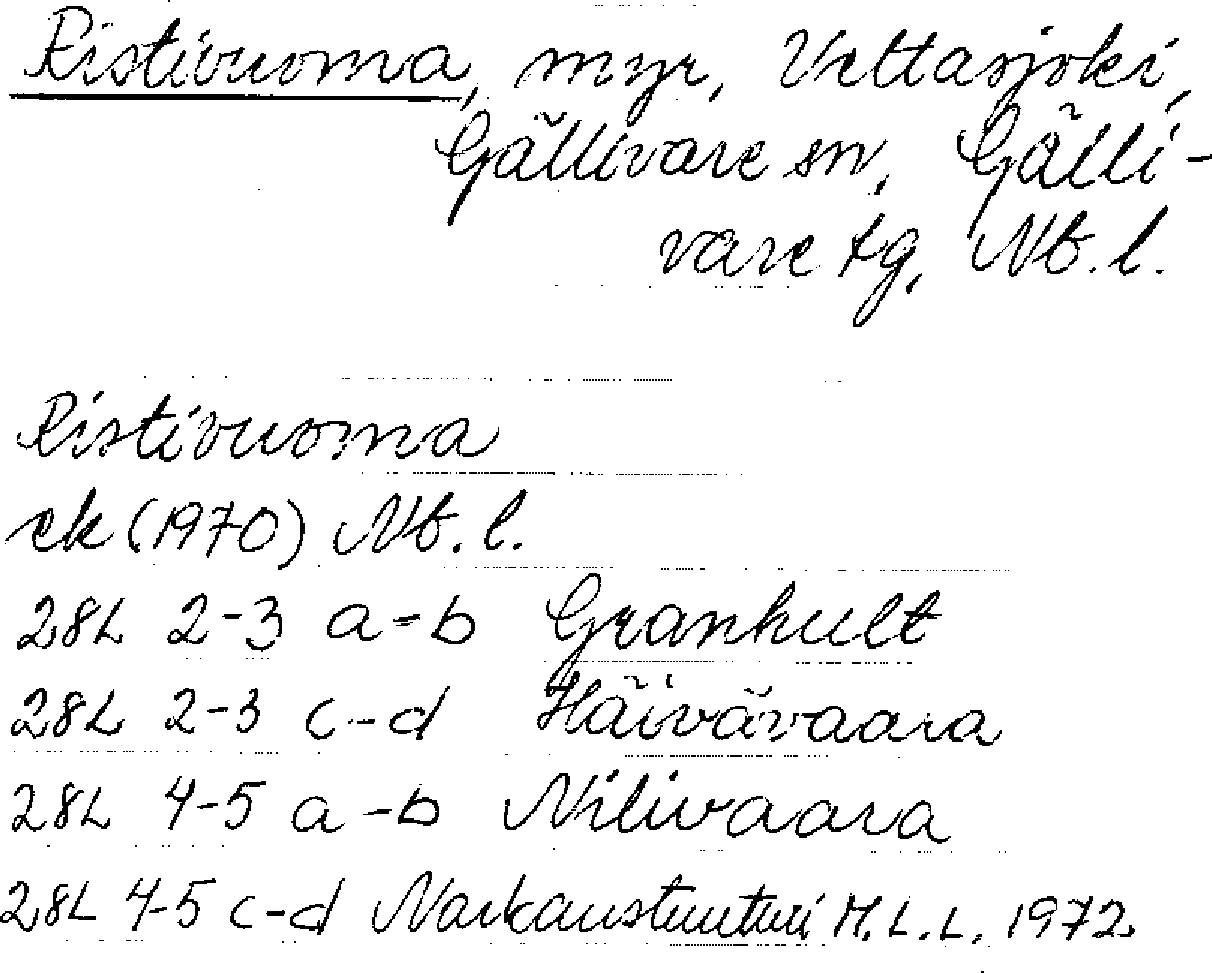 Ristivuoma, myr, Vettasjoki,
Gällivare sn, Gälli-
vare tg, Nb. l.
Ristivuoma
ek (1970) Nb. l.
28L 2-3 a-b Granhult
28L 2-3 c-d Häivävaara
28L 4-5 a-b Nilivaara
28L 4-5 c-d Narkaustunturi H.L.L. 1972